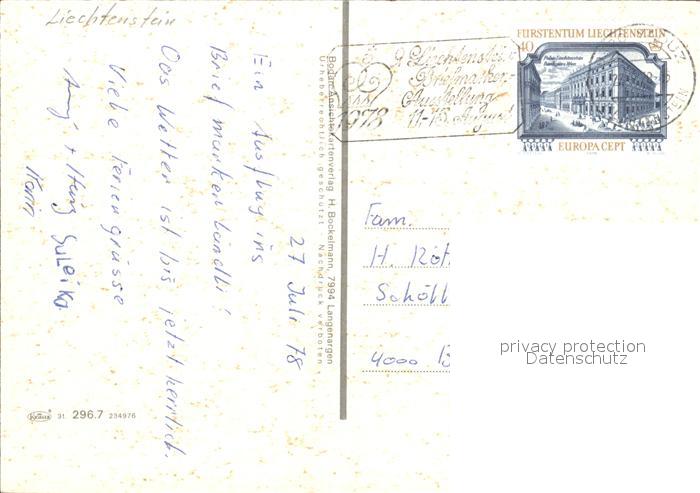 Liechtenstein
27 Juli 78
Ein Ausflug ins
Briefmarkenländli!
Das Wetter ist bis jetzt herrlich.
Viele Feriengrüsse
+ Suleika
Karin
Bodan-Ansichtskartenverlag H. Bockelmann, 7994 Langenargen
Urheberrechtlich geschützt Nachdruck verboten
Krüger 31. 296.7 234976
9. Liechtenstein.
Briefmarken-
Ausstellung
1978
August
FÜRSTENTUM LIECHTENSTEIN
40
Palais Liechtenstein
Bankgasse, Wien
EUROPA CEPT
VADUZ
Fam.
H. Rot
Schöll
4000 B
privacy protection
Datenschutz